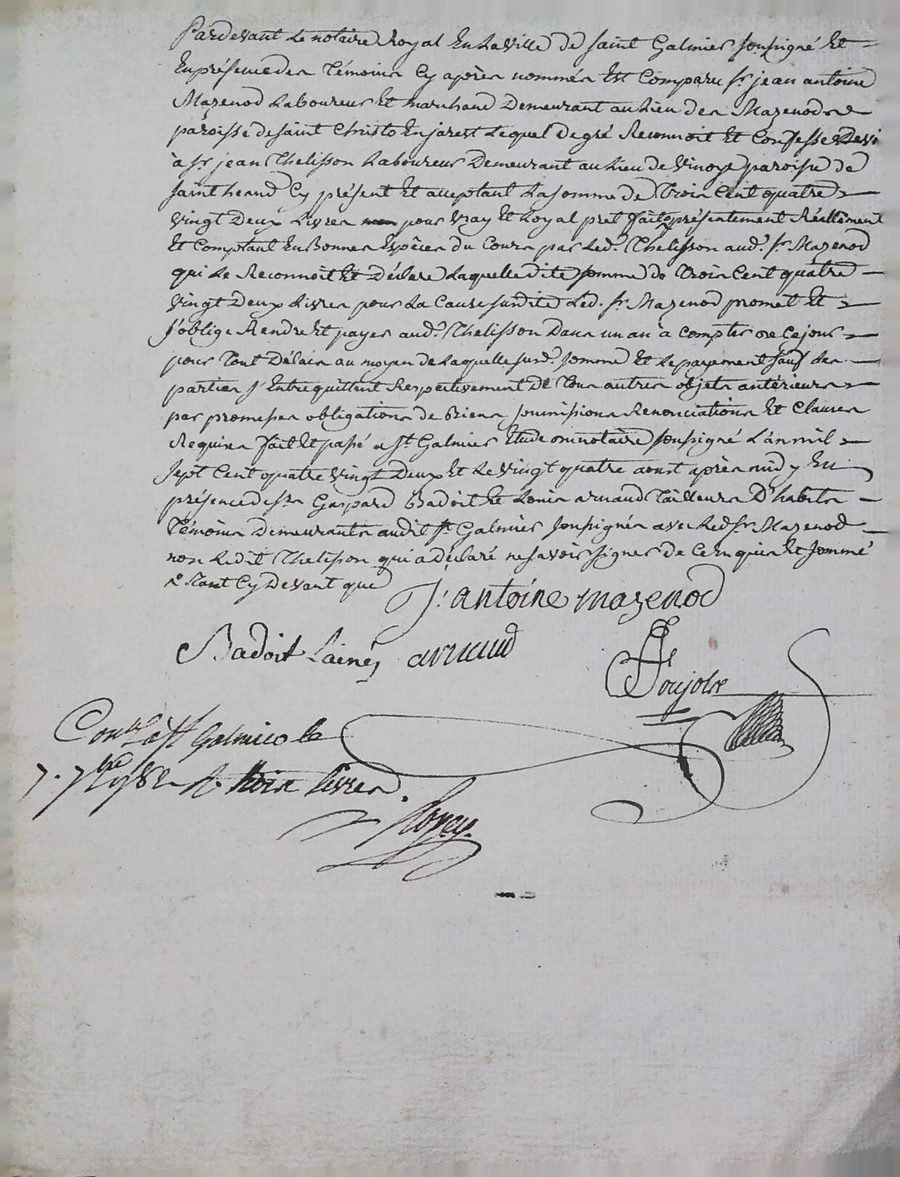 Pardevant Le notaire Royal En La Ville de saint Galmier soussigné Et
En présence des Témoins Cy après nommés Est Comparu Sr. jean antoine
Mazenod Laboureur Et marchand Demeurant au Lieu des Mazenods
paroisse de saint Christo En jarest Lequel de gré Reconnoit Et Confesse Devoir
à Sr. jean Thelisson Laboureur Demeurant au Lieu de paroisse de
saint heand Cy présent Et acceptant La somme de Trois Cent quatre
Vingt Deux Livres pour Vray Et Loyal pret fait présentement Réellement
Et Comptant En Bonnes Espèces du Cours par Led. Thelisson aud. Sr. Mazenod
qui Le Reconnoit Et Déclare Laquelle dite somme de Trois Cent quatre
Vingt Deux Livres pour La Cause susdite Led. Sr. Mazenod promet Et
s'oblige Rendre Et payer aud. Thelisson Dans un an à Compter de Ce jour
pour Tout Délais au moyen de Laquelle susd. somme Et Le payement Sauf Les
parties s'Entrequittent Respectivement De Tous autres objets antérieurs
par promesses obligations de Biens soumissions Renonciations Et Clauses
Requises fait Et passé a St. Galmier Etude du notaire soussigné L'an mil
sept Cent quatre Vingt Deux Et Le Vingt quatre aoust après midy En
présence de Srs. Gaspard Badoit Et Louis arnaud Tailleurs D'habits
Témoins Demeurants audit St. Galmier soussignés avec Led. Sr. Mazenod
non Ledit Thelisson qui a Déclaré ne savoir signer de Ce Enquis Et sommé
Tant Cy Devant que
J. antoine mazenod
Badoit Lainé arnaud
Poujols
Conlé. à St Galmier le
7. 7bre 1782 R. trois Livres